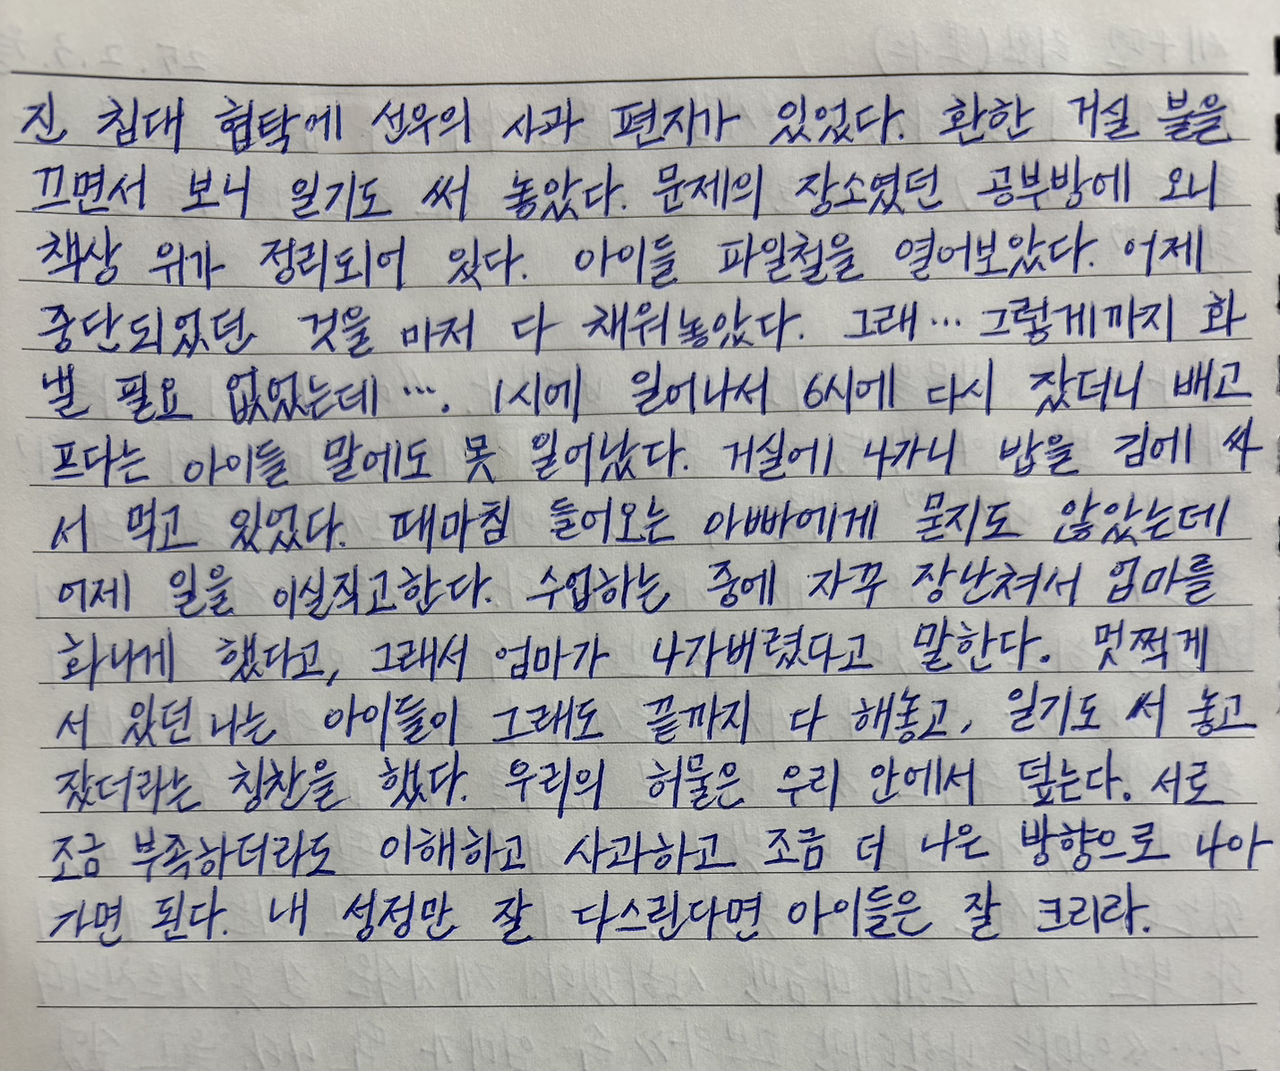 진 침대 협탁에 선우의 사과 편지가 있었다. 환한 거실 불을
끄면서 보니 일기도 써 놓았다. 문제의 장소였던 공부방에 오니
책상 위가 정리되어 있다. 아이들 파일철을 열어보았다. 어제
중단되었던 것을 마저 다 채워놓았다. 그래… 그렇게까지 화
낼 필요 없었는데…. 1시에 일어나서 6시에 다시 잤더니 배고
프다는 아이들 말에도 못 일어났다. 거실에 나가니 밥을 김에 싸
서 먹고 있었다. 때마침 들어오는 아빠에게 묻지도 않았는데
어제 일을 이실직고한다. 수업하는 중에 자꾸 장난쳐서 엄마를
화나게 했다고, 그래서 엄마가 나가버렸다고 말한다. 멋쩍게
서 있던 나는 아이들이 그래도 끝까지 다 해놓고, 일기도 써 놓고
잤더라는 칭찬을 했다. 우리의 허물은 우리 안에서 덮는다. 서로
조금 부족하더라도 이해하고 사과하고 조금 더 나은 방향으로 나아
가면 된다. 내 성정만 잘 다스린다면 아이들은 잘 크리라.